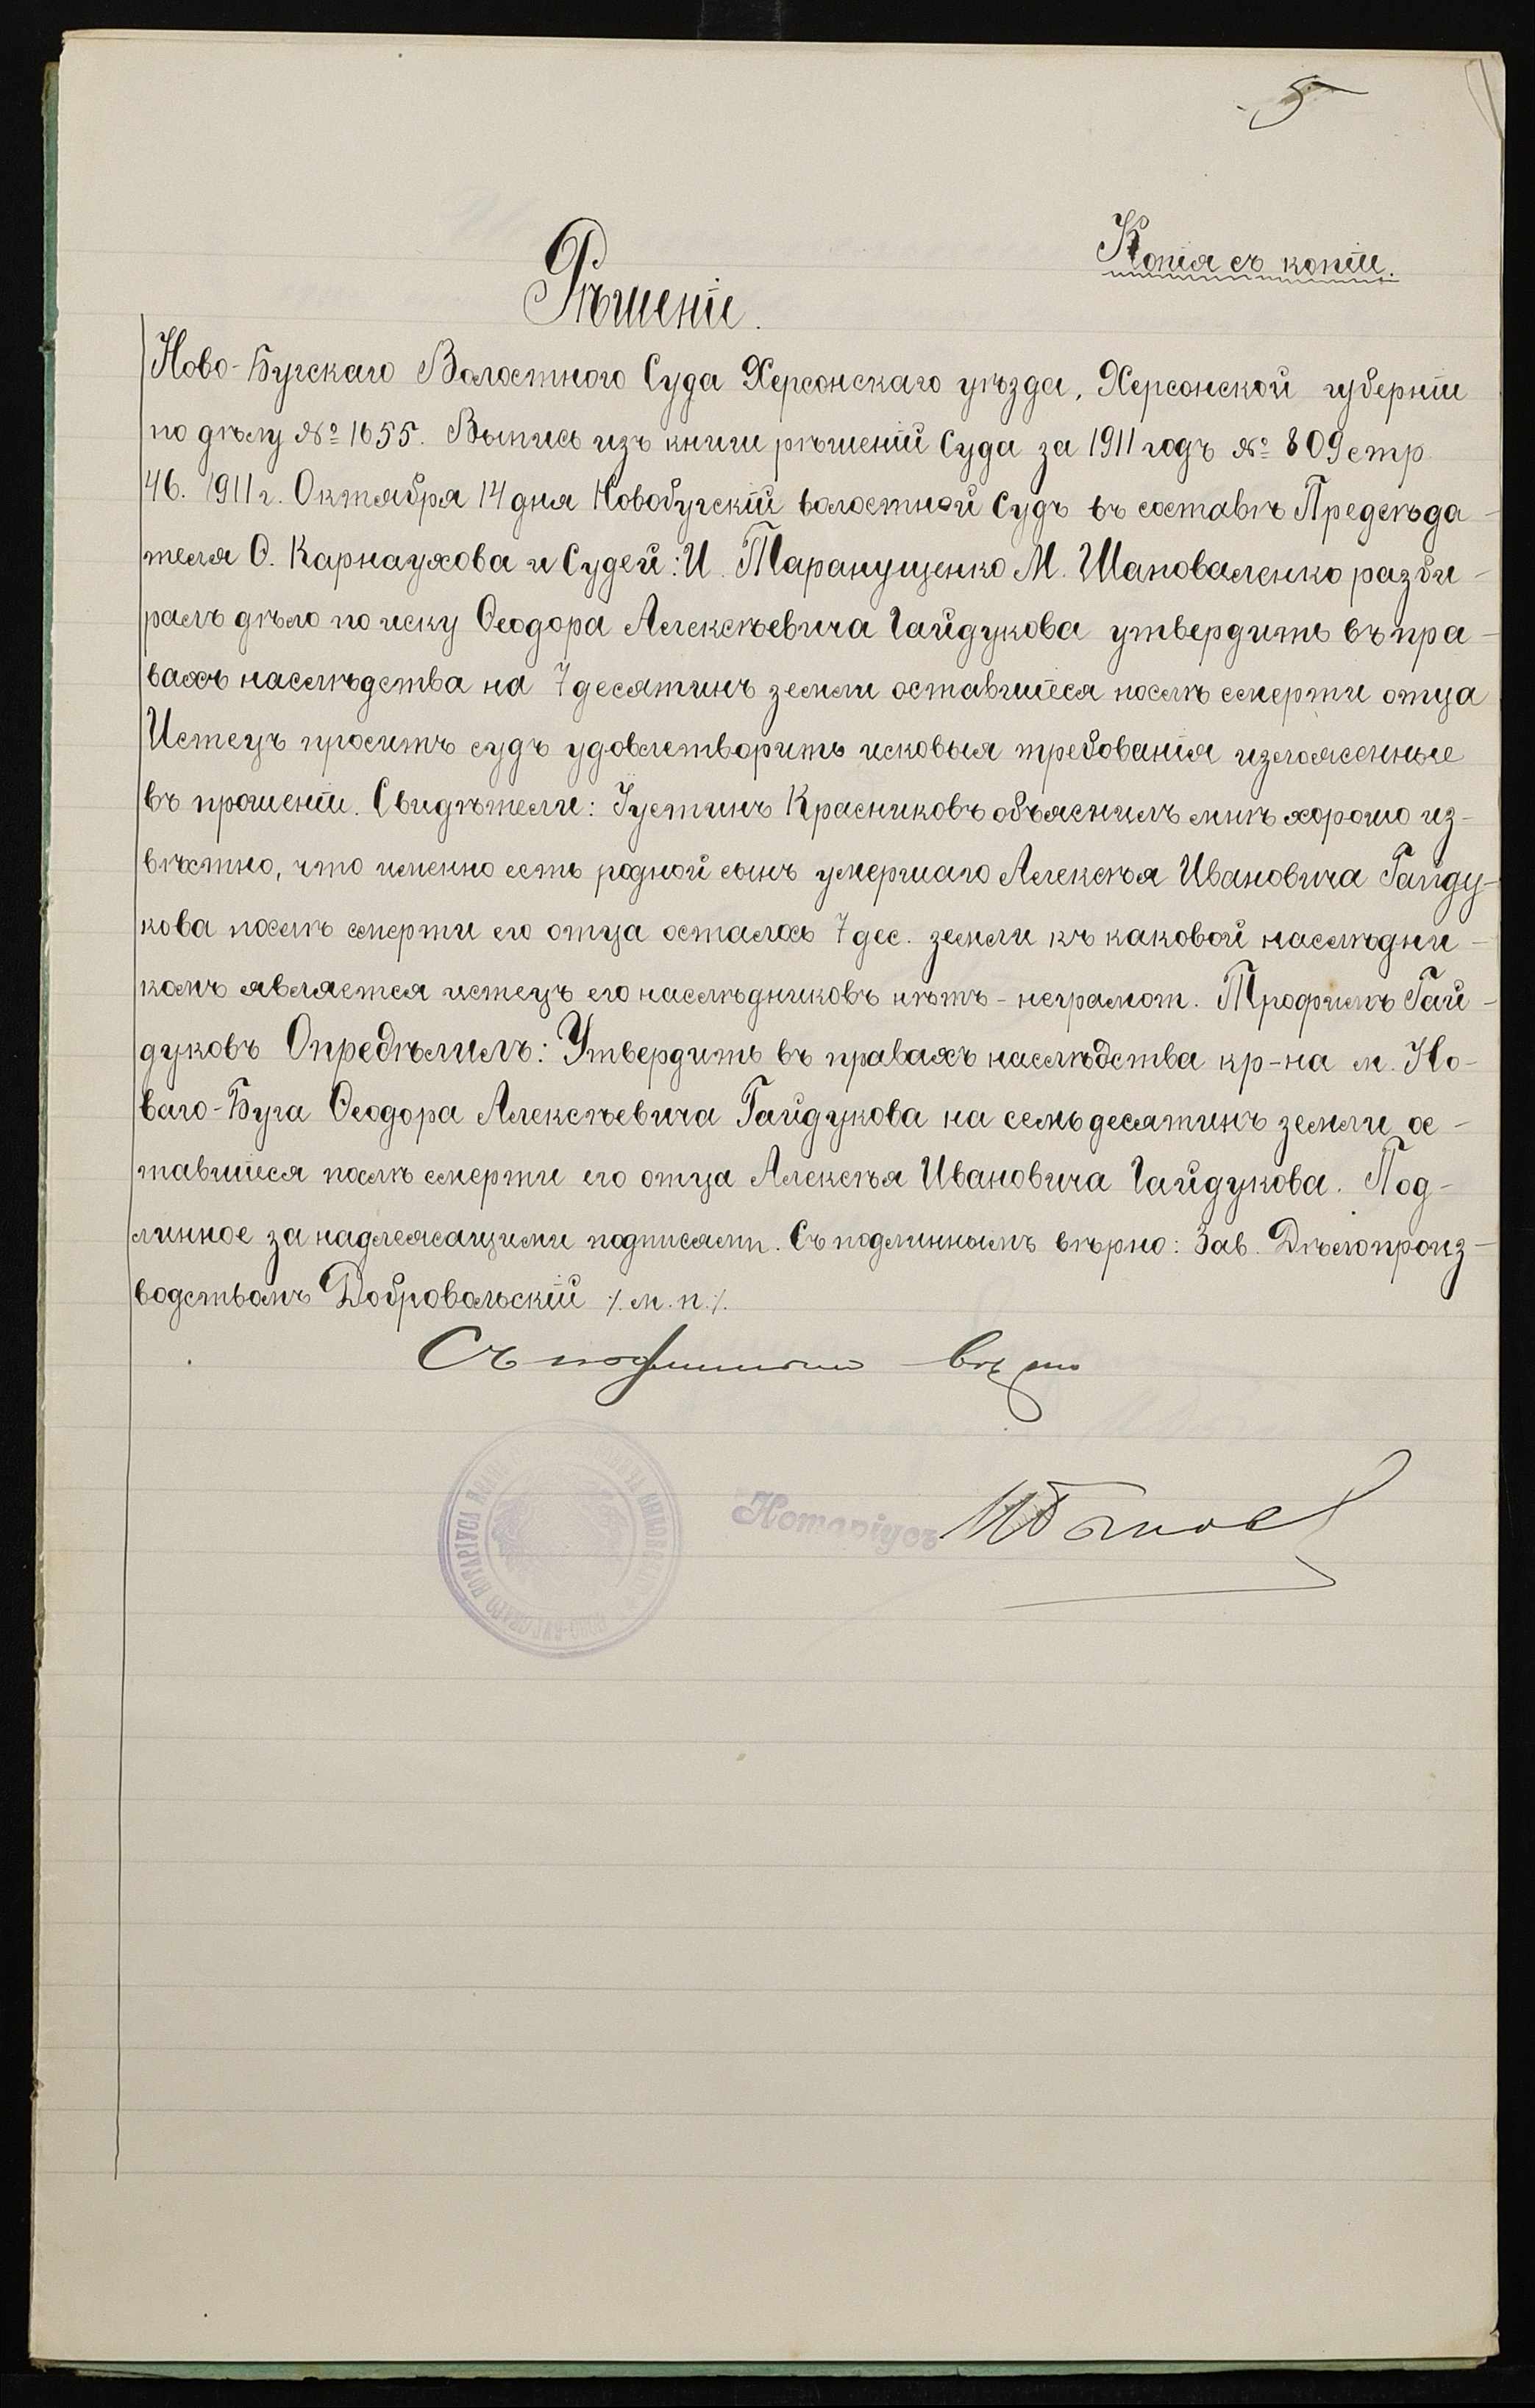 5
Копія съ копіи.
Рѣшеніе.
Ново-Бугскаго Волостного Суда Херсонскаго уѣзда, Херсонской губерніи
по дѣлу № 1655. Выпись изъ книги рѣшеній Суда за 1911 годъ № 809 стр
46. 1911 г. Октября 14 дня Новобугскій волостной Судъ въ составѣ Предсѣда-
теля Ѳ. Карнаухова и Судей: И. Таранущенко М. Шаповаленко разби-
ралъ дѣло по иску Ѳеодора Алексѣевича Гайдукова утвердить въ пра-
вахъ наслѣдства на 7 десятинъ земли оставшіеся послѣ смерти отца
Истецъ проситъ судъ удовлетворить исковыя требованія изложенные
въ прошеніи. Свидѣтели: Іустинъ Красниковъ объяснилъ мнѣ хорошо из-
вѣстно, что именно есть родной сынъ умершаго Алексѣя Ивановича Гайду-
кова послѣ смерти его отца осталось 7 дес. земли къ каковой наслѣдни-
комъ является истецъ его наслѣдниковъ нѣтъ - неграмот. Трофимъ Гай-
дуковъ Опредѣлилъ: Утвердить въ правахъ наслѣдства кр-на м. Но-
ваго-Буга Ѳеодора Алексѣевича Гайдукова на семь десятинъ земли ос-
тавшіеся послѣ смерти его отца Алексѣя Ивановича Гайдукова. Под-
линное за надлежащими подписями. Съ подлиннымъ вѣрно: Зав. Дѣлопроиз-
водствомъ Добровольскій /. м. п. /.
Съ подлиннымъ вѣрно
Нотаріусъ
НОТАРІУСА